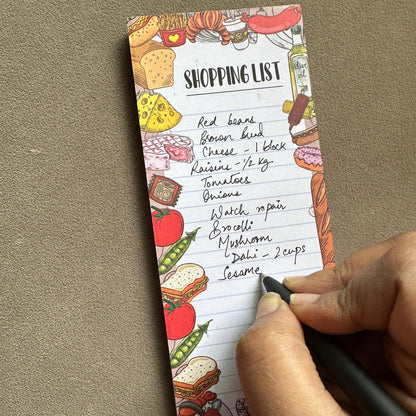 SHOPPING LIST
Red beans
Brown bread
Cheese - 1 block
Raisins - 1/2 kg
Tomatoes
Onions
Watch repair
Brocolli
Mushroom
Dahi - 2 cups
Sesame
olive oil